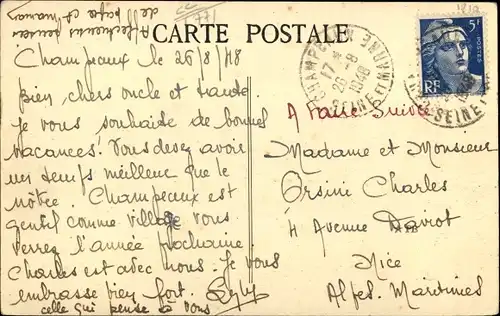 CARTE POSTALE
Affectueuses pensées
de papa et maman
Champeaux le 26/8/48
Bien chers oncle et tante
Je vous souhaite de bonnes
vacances! Vous devez avoir
un temps meilleur que le
nôtre. Champeaux est
gentil comme village vous
verrez l'année prochaine.
Charles est avec nous. Je vous
embrasse bien fort.
celle qui pense à vous
CHAMPEAUX
17 *
26-8
1948
SEINE ET MARNE
5F
POSTES
RF
SEINE
A Faire Suivre
Madame et Monsieur
Orsini Charles
4 Avenue
Nice
Alpes. Maritimes